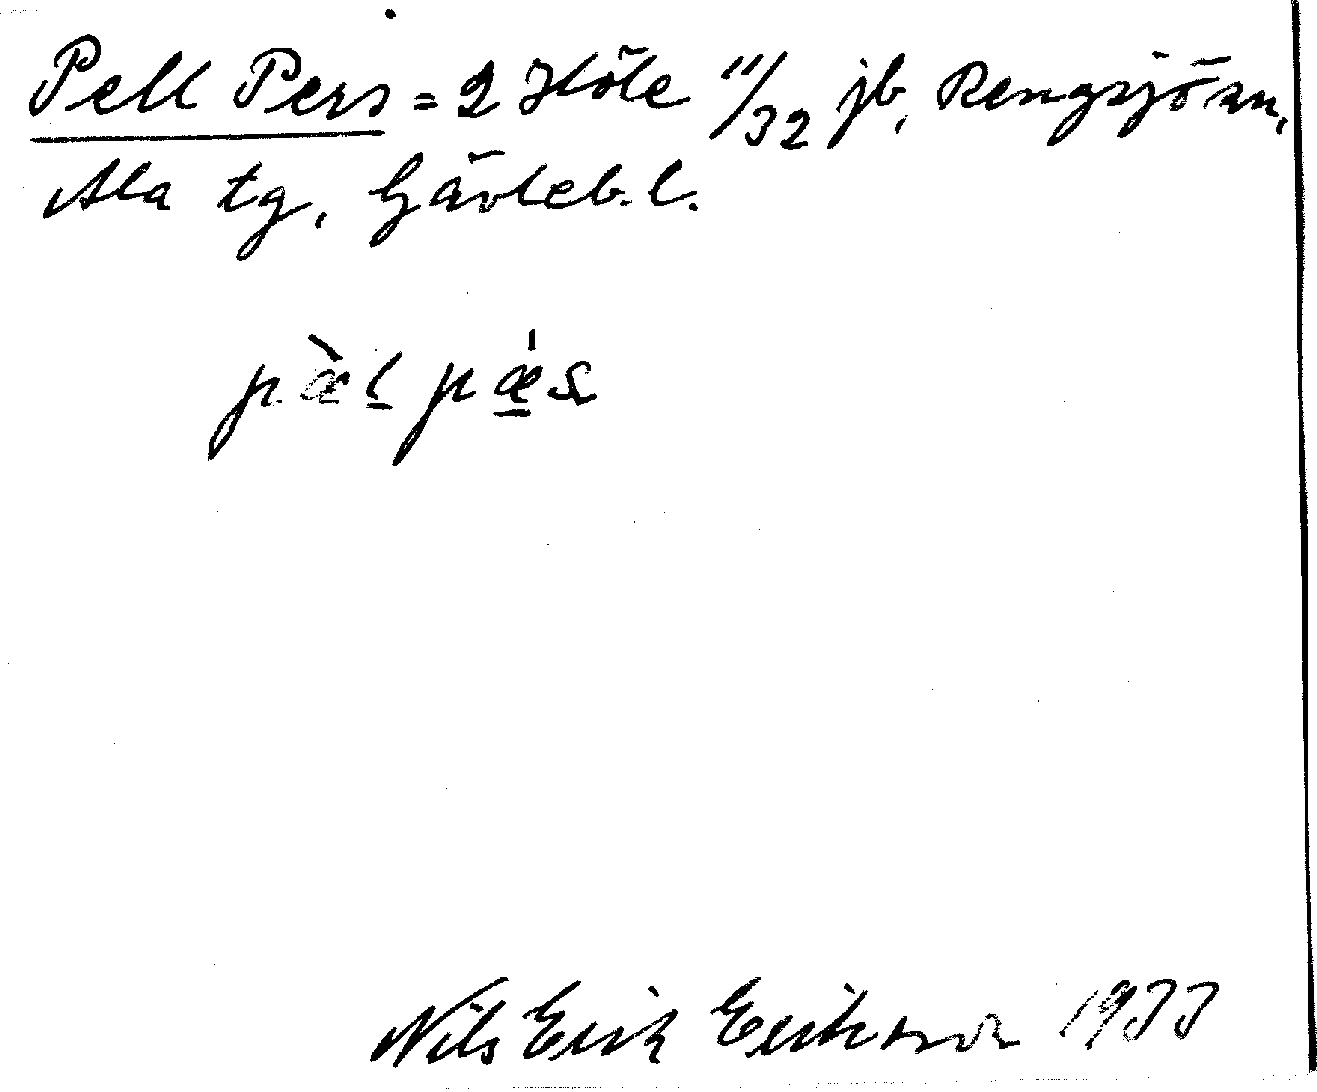 Pell Pers = 2 Höle 11/32 jb, Rengsjö sn,
Ala tg, Gävleb. l.
pæ̀l pæ̍s
Nils Erik Eriksson 1933